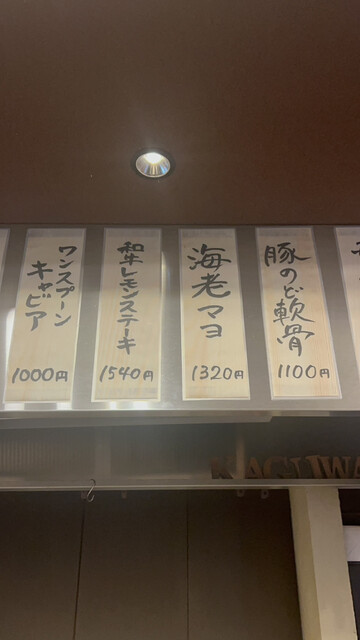 豚のど軟骨
1100円
海老マヨ
1320円
和牛レモンステーキ
1540円
ワンスプーン
キャビア
1000円